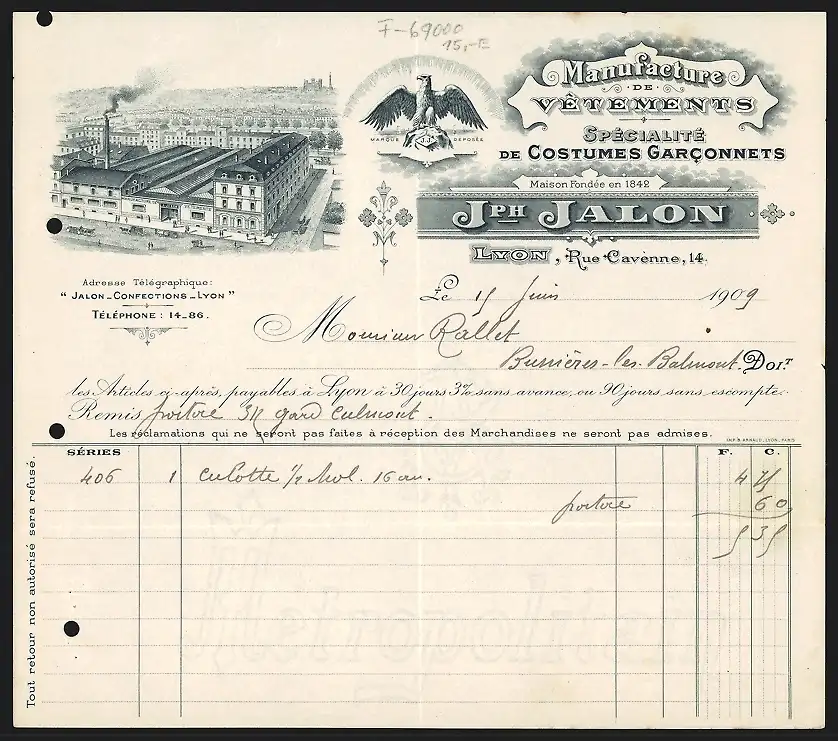 F-69000
15,-E
Manufacture
DE
VÊTEMENTS
SPÉCIALITÉ
DE COSTUMES GARÇONNETS
MARQUE DÉPOSÉE
J.J.
Maison Fondée en 1842
JPH JALON
LYON, Rue Cavenne, 14.
Adresse Télégraphique:
"JALON_CONFECTIONS_LYON"
TÉLÉPHONE: 14_86.
Le 15 Juin 1909
Monsieur Rallet
Bussières-les-Balmont. DOIT
les Articles ci-après, payables à Lyon à 30 jours 3% sans avance, ou 90 jours sans escompte:
Remis gare Culmont.
Les réclamations qui ne seront pas faites à réception des Marchandises ne seront pas admises.
IMP. B. ARNAUD, LYON, PARIS
SÉRIES F. C.
406 1 Culotte ½ Mol. 16 an. 4 75
60
5 35
Tout retour non autorisé sera refusé.